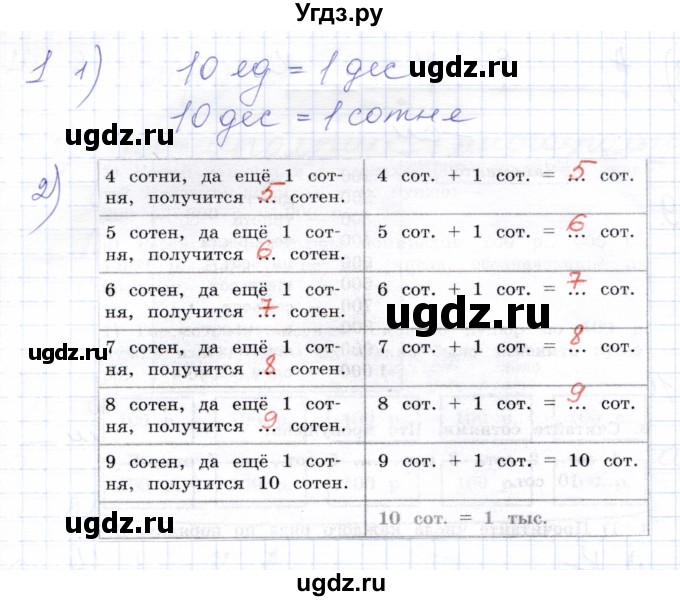 Угдз.ру
1 1) 10 ед = 1 дес
ugdz.ru
10 дес = 1 сотне
ugdz.ru
ugdz.ru
2)
4 сотни, да ещё 1 сот-
ня, получится 5 сотен.
4 сот. + 1 сот. = 5 сот.
5 сотен, да ещё 1 сот-
ня, получится 6 сотен.
5 сот. + 1 сот. = 6 сот.
6 сотен, да ещё 1 сот-
ня, получится 7 сотен.
6 сот. + 1 сот. = 7 сот.
ugdz.ru
ugdz.ru
7 сотен, да ещё 1 сот-
ня, получится 8 сотен.
7 сот. + 1 сот. = 8 сот.
8 сотен, да ещё 1 сот-
ня, получится 9 сотен.
8 сот. + 1 сот. = 9 сот.
ugdz.ru
9 сотен, да ещё 1 сот-
ня, получится 10 сотен.
9 сот. + 1 сот. = 10 сот.
ugdz.ru
10 сот. = 1 тыс.
ugdz.ru
ugdz.ru